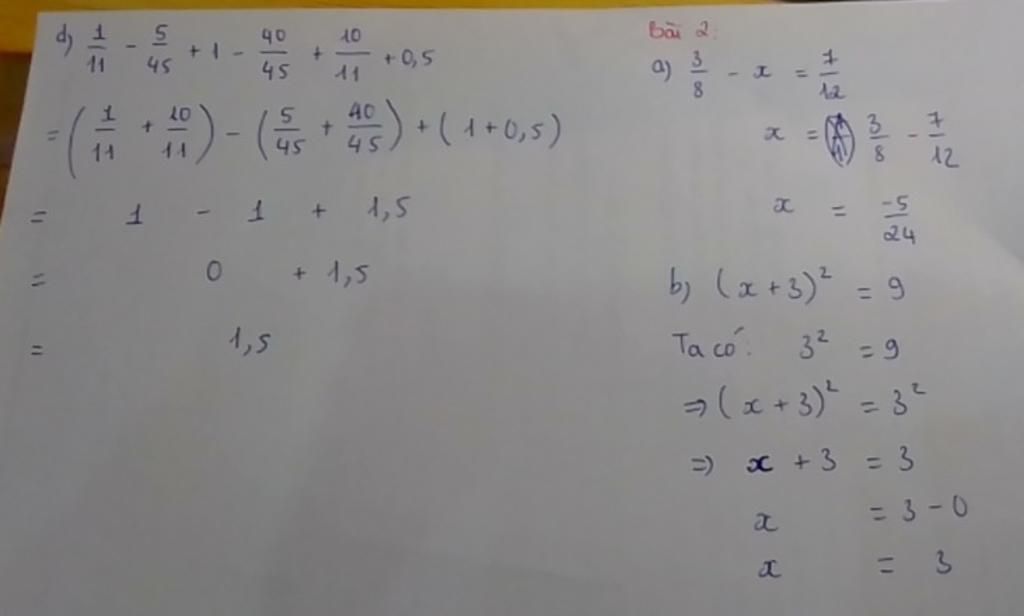 d) 1/11 - 5/45 + 1 - 40/45 + 10/11 + 0,5
= (1/11 + 10/11) - (5/45 + 40/45) + (1 + 0,5)
= 1 - 1 + 1,5
= 0 + 1,5
= 1,5
Bài 2:
a) 3/8 - x = 7/12
x = 3/8 - 7/12
x = -5/24
b) (x + 3)² = 9
Ta có: 3² = 9
⇒ (x + 3)² = 3²
⇒ x + 3 = 3
x = 3 - 0
x = 3